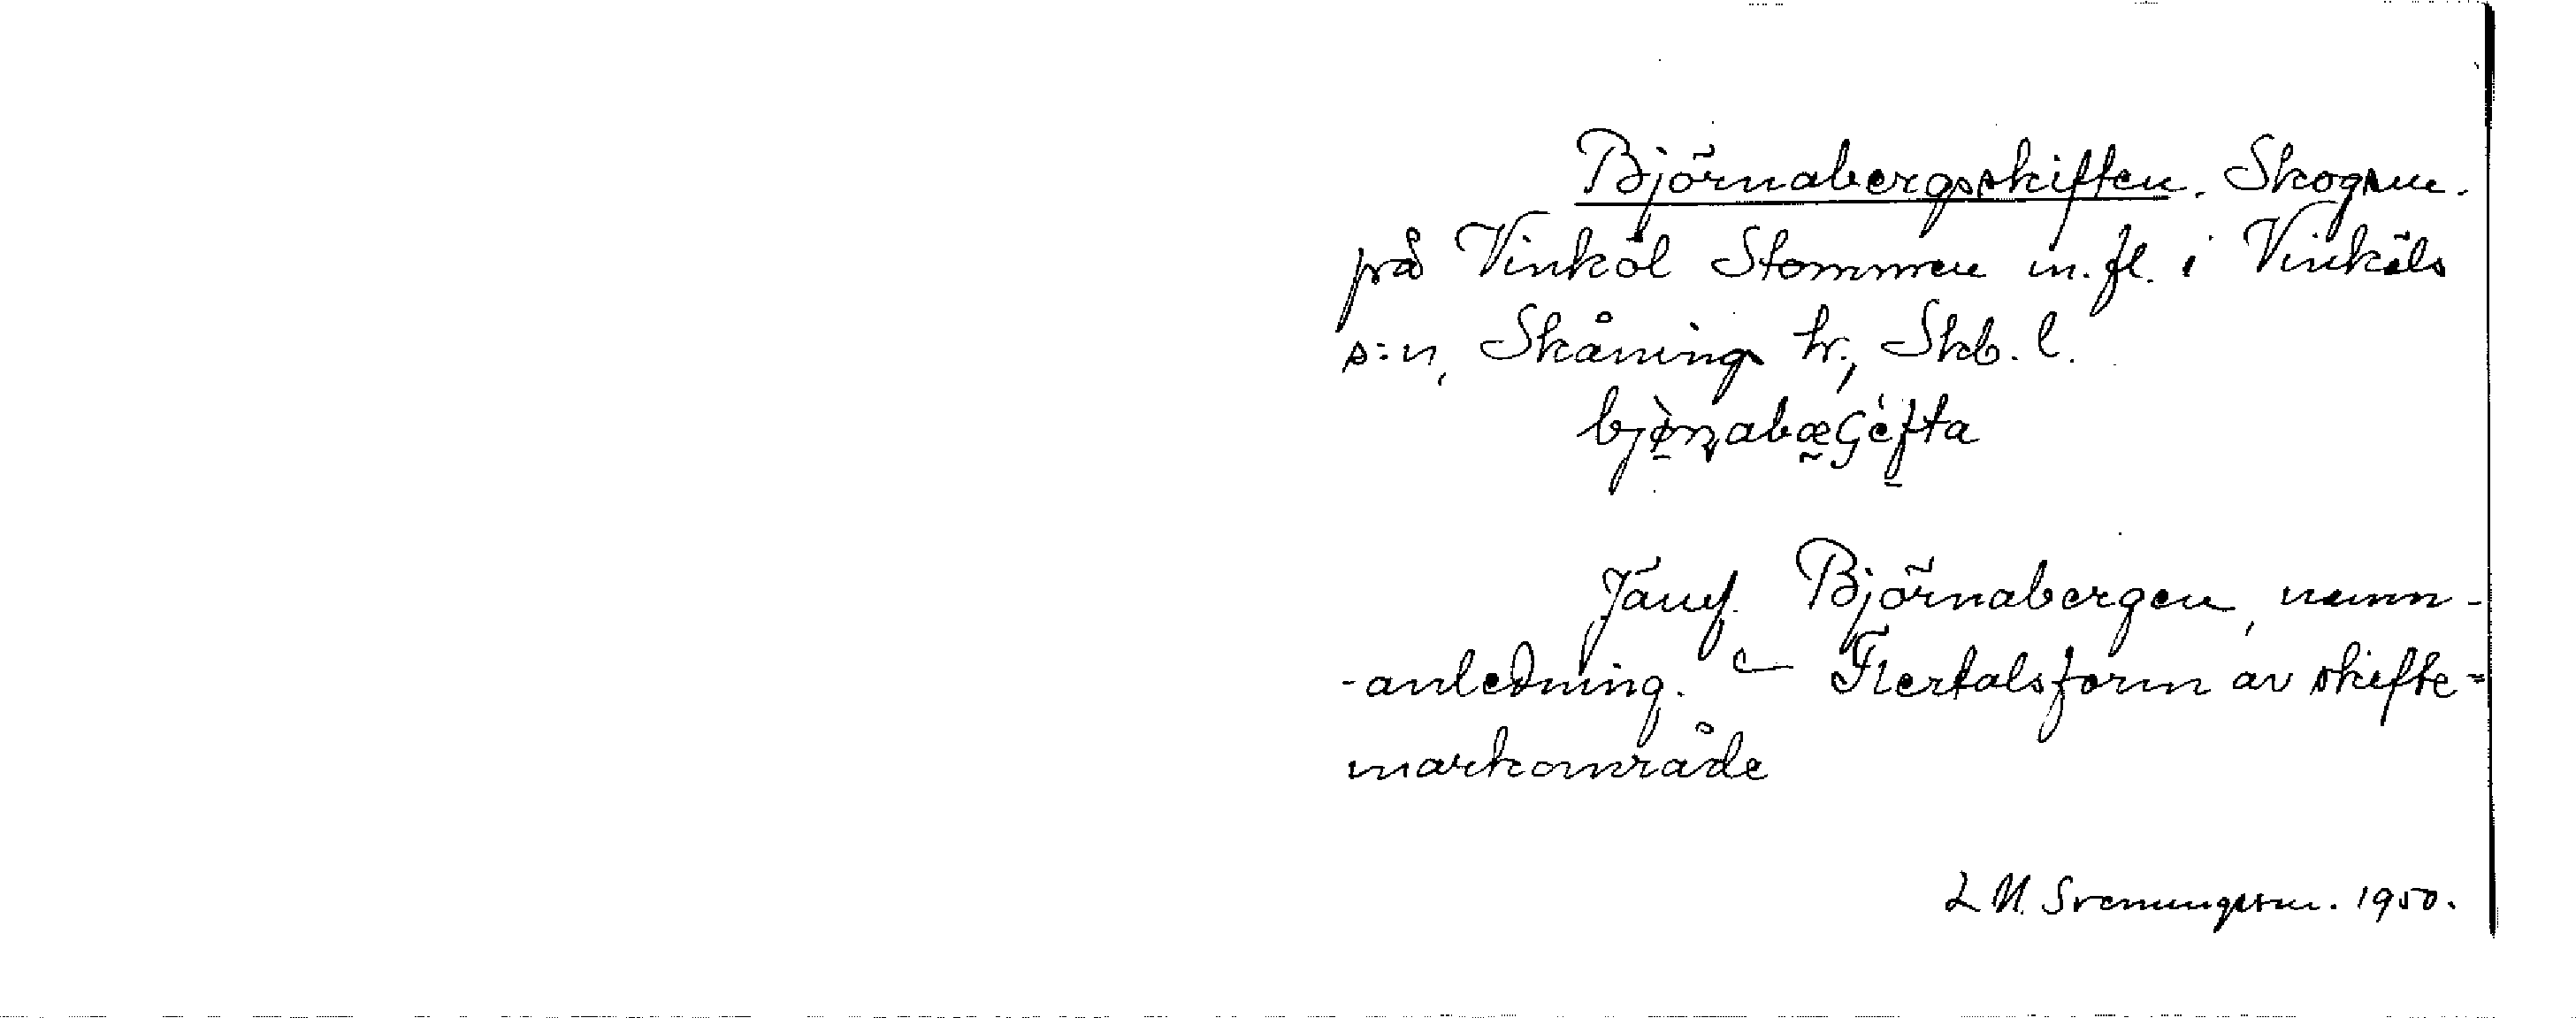 Björnabergsskiften. Skogsm.
på Vinköl Stommen m.fl. i Vinköls
s:n, Skånings hr., Skb. l.
Jämf. Björnabergen, namn-
-anledning. – Flertalsform av skifte =
markområde
L M. Svenungsson. 1950.